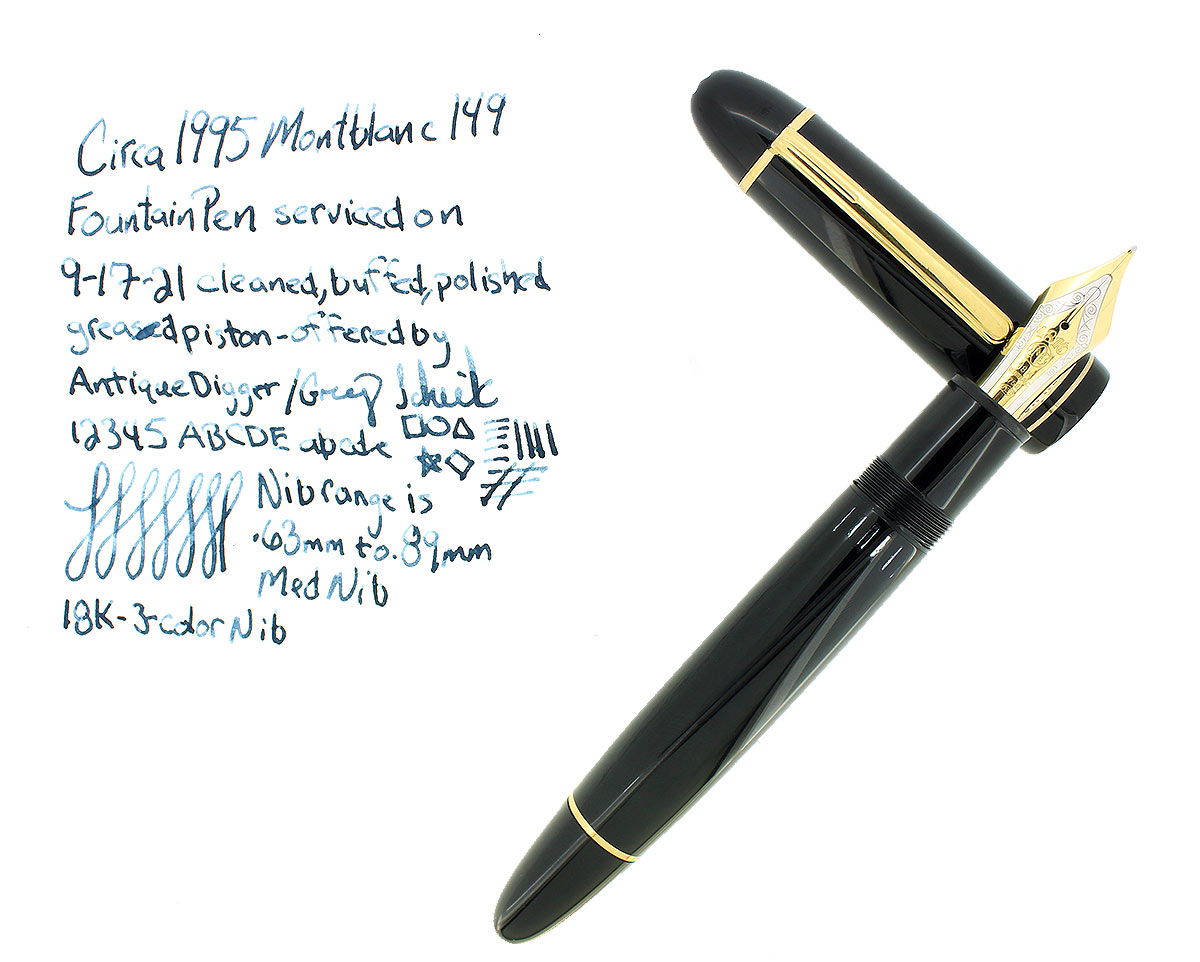 Circa 1995 Montblanc 149
Fountain Pen serviced on
9-17-21 cleaned, buffed, polished
greased piston - offered by
Antique Digger / Greg
12345 ABCDE abcde
Nib range is
.63mm to .89mm
Med Nib
18K-3-color Nib